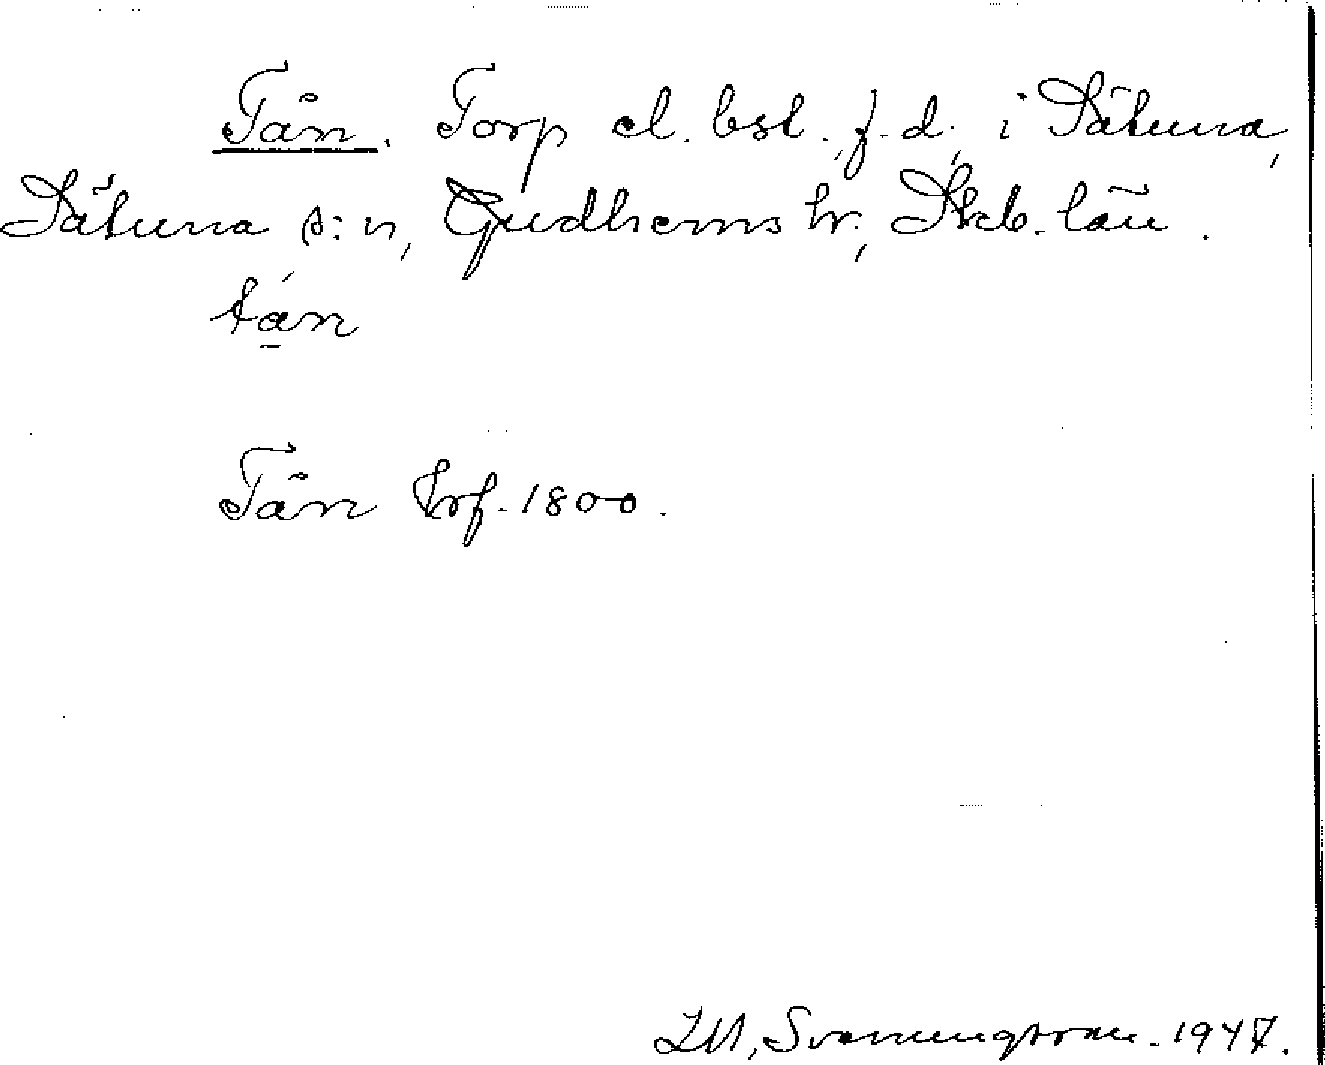 Tån. Torp el. bsl., f.d., i Sätuna,
Sätuna s:n, Gudhems hr, Skb. län.
tán
Tån Hrf. 1800.
I.M. Svenungsson. 1947.